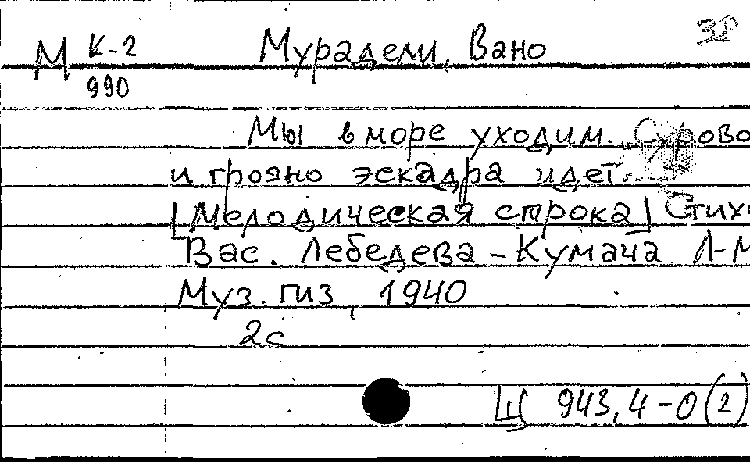 М К-2 Мурадели, Вано
990
Мы в море уходим. Сурово
и грозно эскадра идет.
[Мелодическая строка] Стихи
Вас. Лебедева-Кумача Л-М
Муз.гиз, 1940
2с
Ц 943,4-0(2)